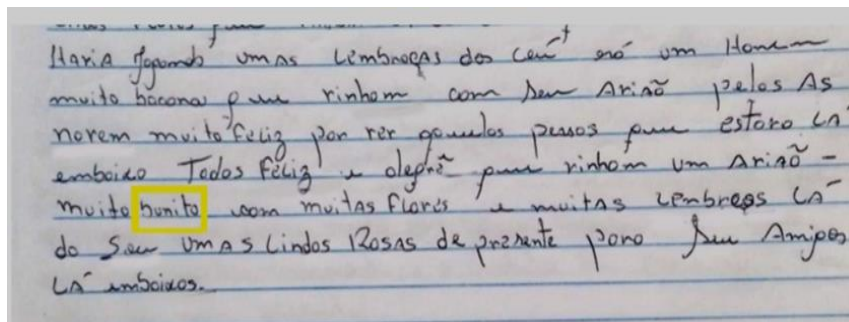 Maria Jogando umas Lembraças dos Ceú eró um Homem
muito bacona que rinhom com seu Arinõ pelos As
norem muito feliz por rer aquelas pessos que estoro LÁ
emboixo Todos Féliz e alegrẽ que rinhom um Arinõ -
muito bunito com muitas Flores e muitas Lembreças LÁ
do Seu Umas Lindos Rosas de presente poro Seu Amigos
LÁ emboixos.